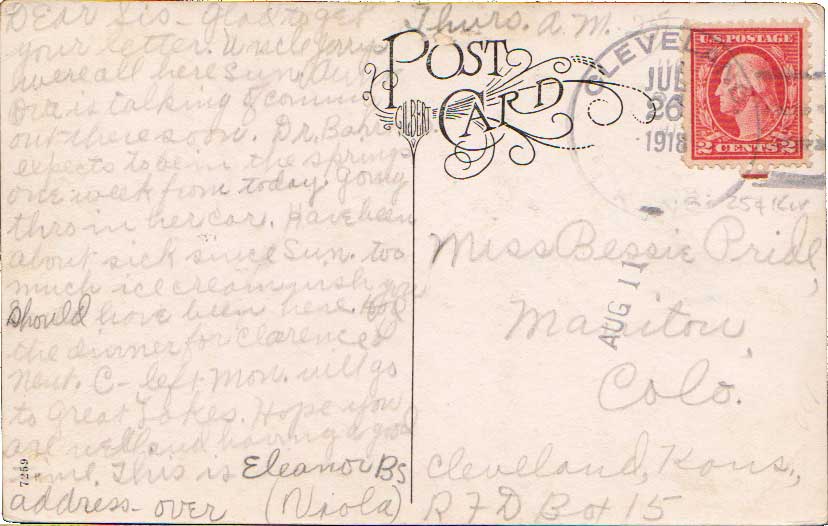 Dear Sis- Glad to get Thurs. A.M.
your letter. Uncle Jerry's
were all here Sun. Aunt
Ora is talking of coming
out there soon. Dr. Bahr
expects to be in the springs
one week from today. Going
thro in her car. Have been
about sick since Sun. too
much ice cream you
should have been here. Had
the dinner for Clarence &
Newt. C- left Mon. will go
to Great Lakes. Hope you
are well and having a good
time. This is Eleanor B's
address- over (Viola)
7259
POST
CARD
GILBERT
CLEVEL
JUL
26
1918
U.S. POSTAGE
2 CENTS 2
AUG 11
Miss Bessie Pride,
Manitou,
Colo.
Cleveland, Kans.,
R F D Box 15